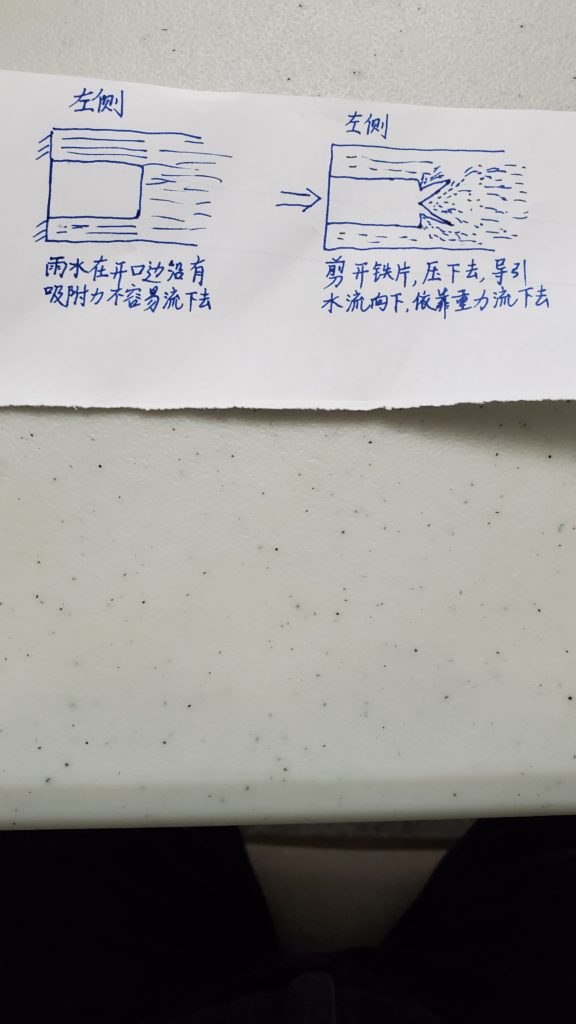 左侧
雨水在开口边沿有
吸附力不容易流下去
左侧
剪开铁片,压下去,导引
水流向下,依靠重力流下去